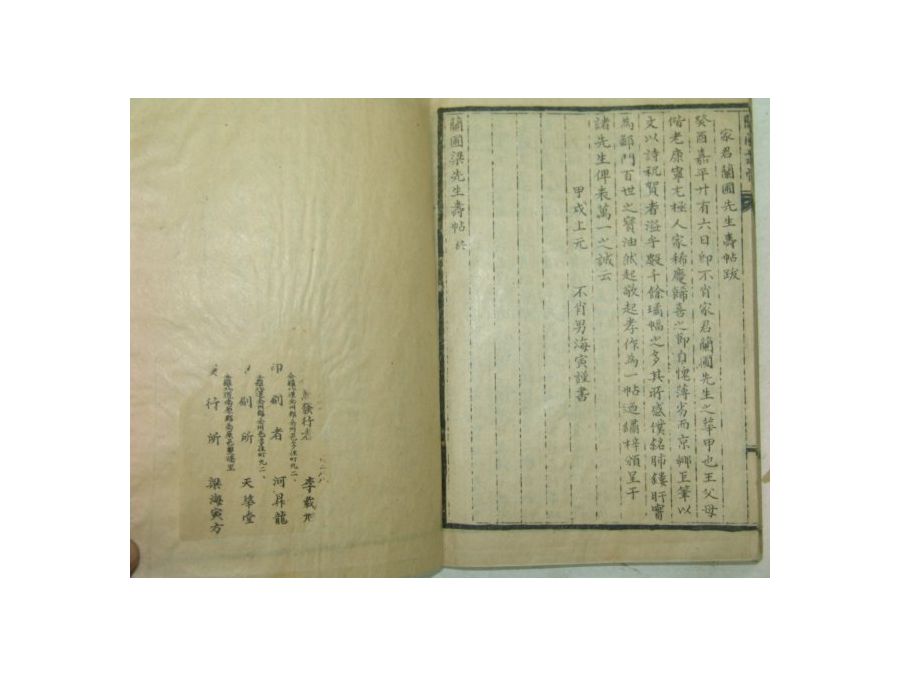 家君蘭圃先生壽帖跋
癸酉嘉平廿有六日卽不肖家君蘭圃先生之華甲也王父母
偕老康寧尤極人家稀慶歸喜之節自愧薄劣而京鄕巨筆以
文以詩祝賀者溢乎數千餘璠幅之多其將感僕銘肺鏤肝實
爲鄙門百世之寶油然起敬起孝作爲一帖通鏽梓頒呈于
諸先生俾表萬一之誠云
甲戌上元 不肖男海寅謹書
蘭圃梁先生壽帖終
發行者 李載
印刷者 河昇龍
刷所 天華堂
全羅北道南原郡南原邑
行所 梁海寅方